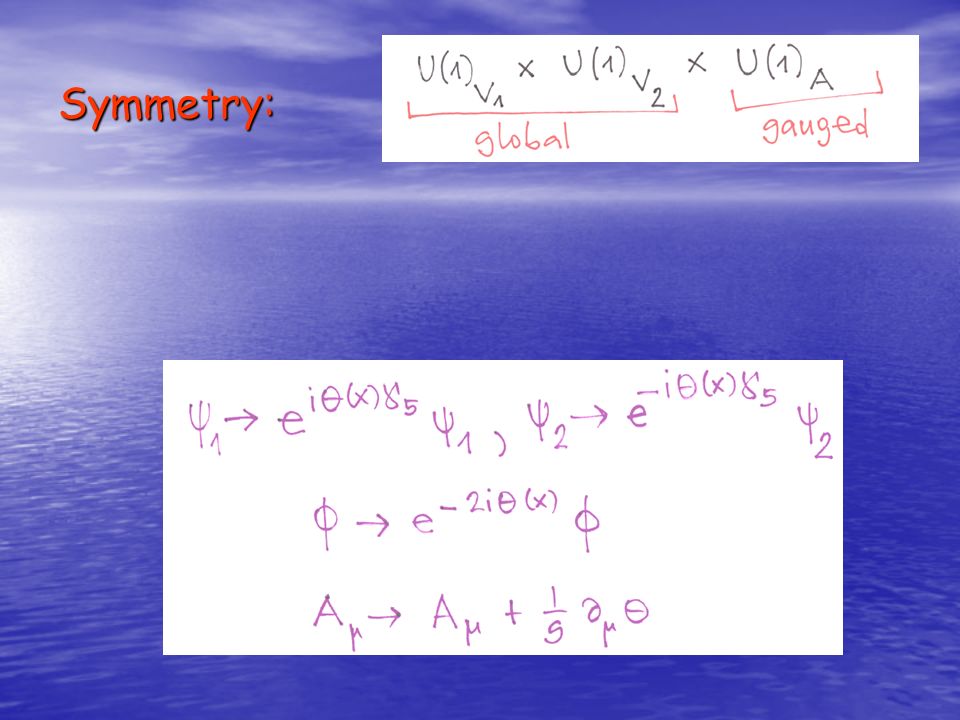 Symmetry:
U(1)_V₁ × U(1)_V₂ × U(1)_A
global gauged
ψ₁ → e^{iθ(x)γ₅} ψ₁ , ψ₂ → e^{-iθ(x)γ₅} ψ₂
ϕ → e^{-2iθ(x)} ϕ
A_μ → A_μ + 1/g ∂_μ θ